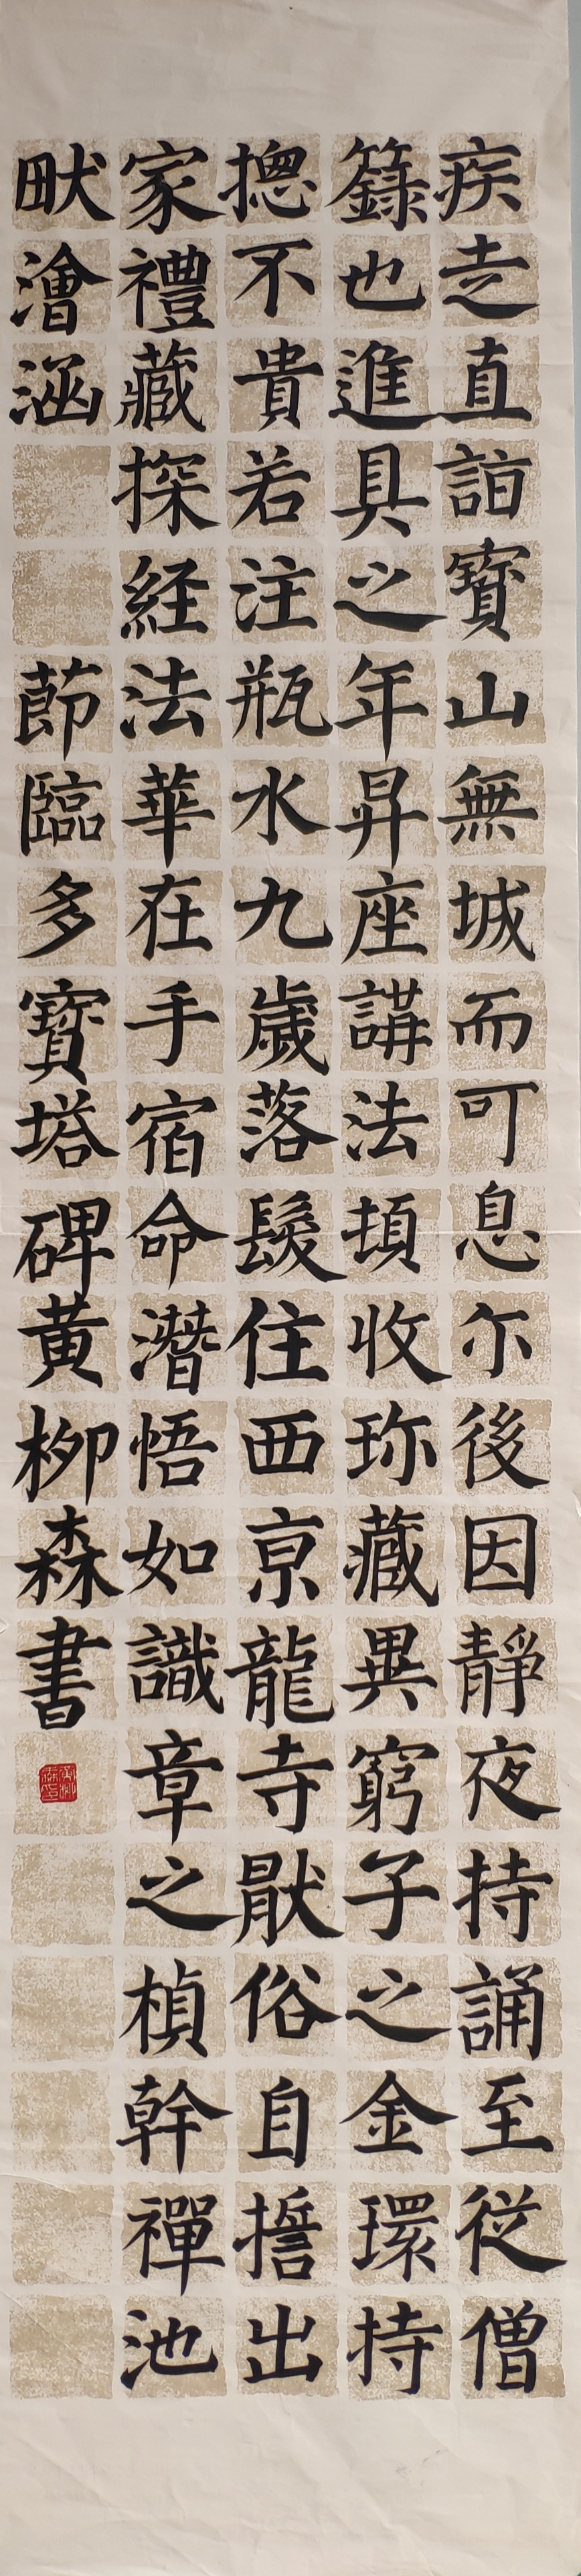 疾走直詣寳山無城而可息尔後因靜夜持誦至従僧
籙也進具之年昇座講法頃收珎藏異窮子之金環持
揔不貴若注瓶水九歲落髮住西京龍寺猒俗自誓出
家禮藏探経法華在手宿命潛悟如識章之楨幹禪池
畎澮涵 節臨多寳塔碑黄柳森書